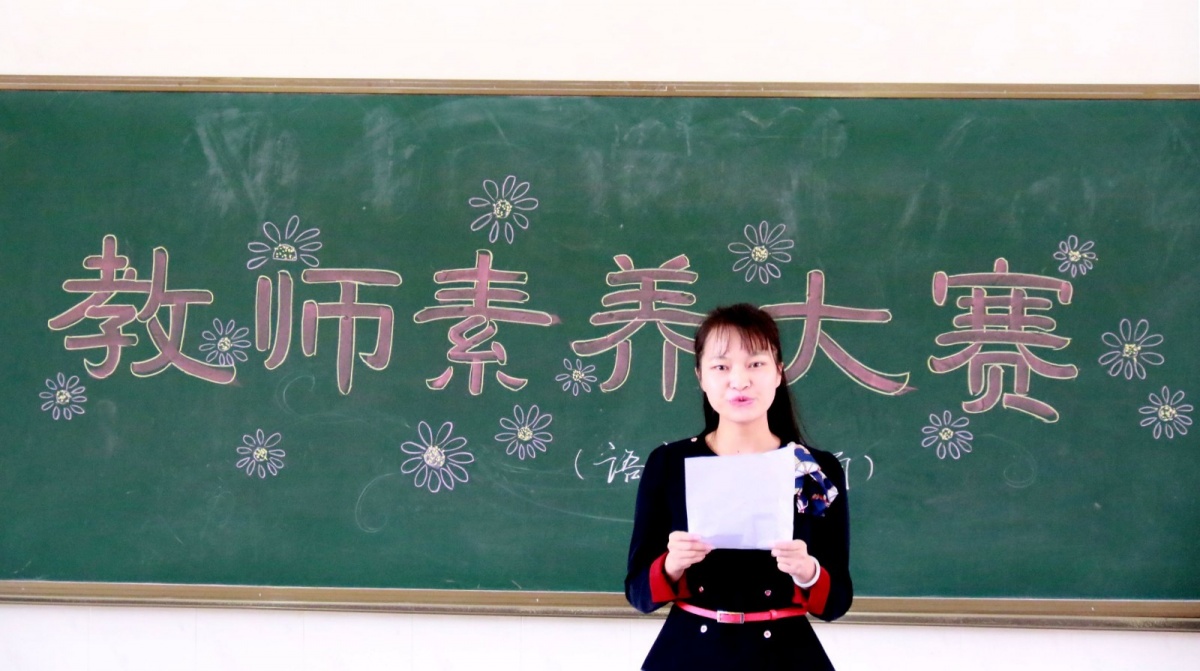 教师素养大赛
(语